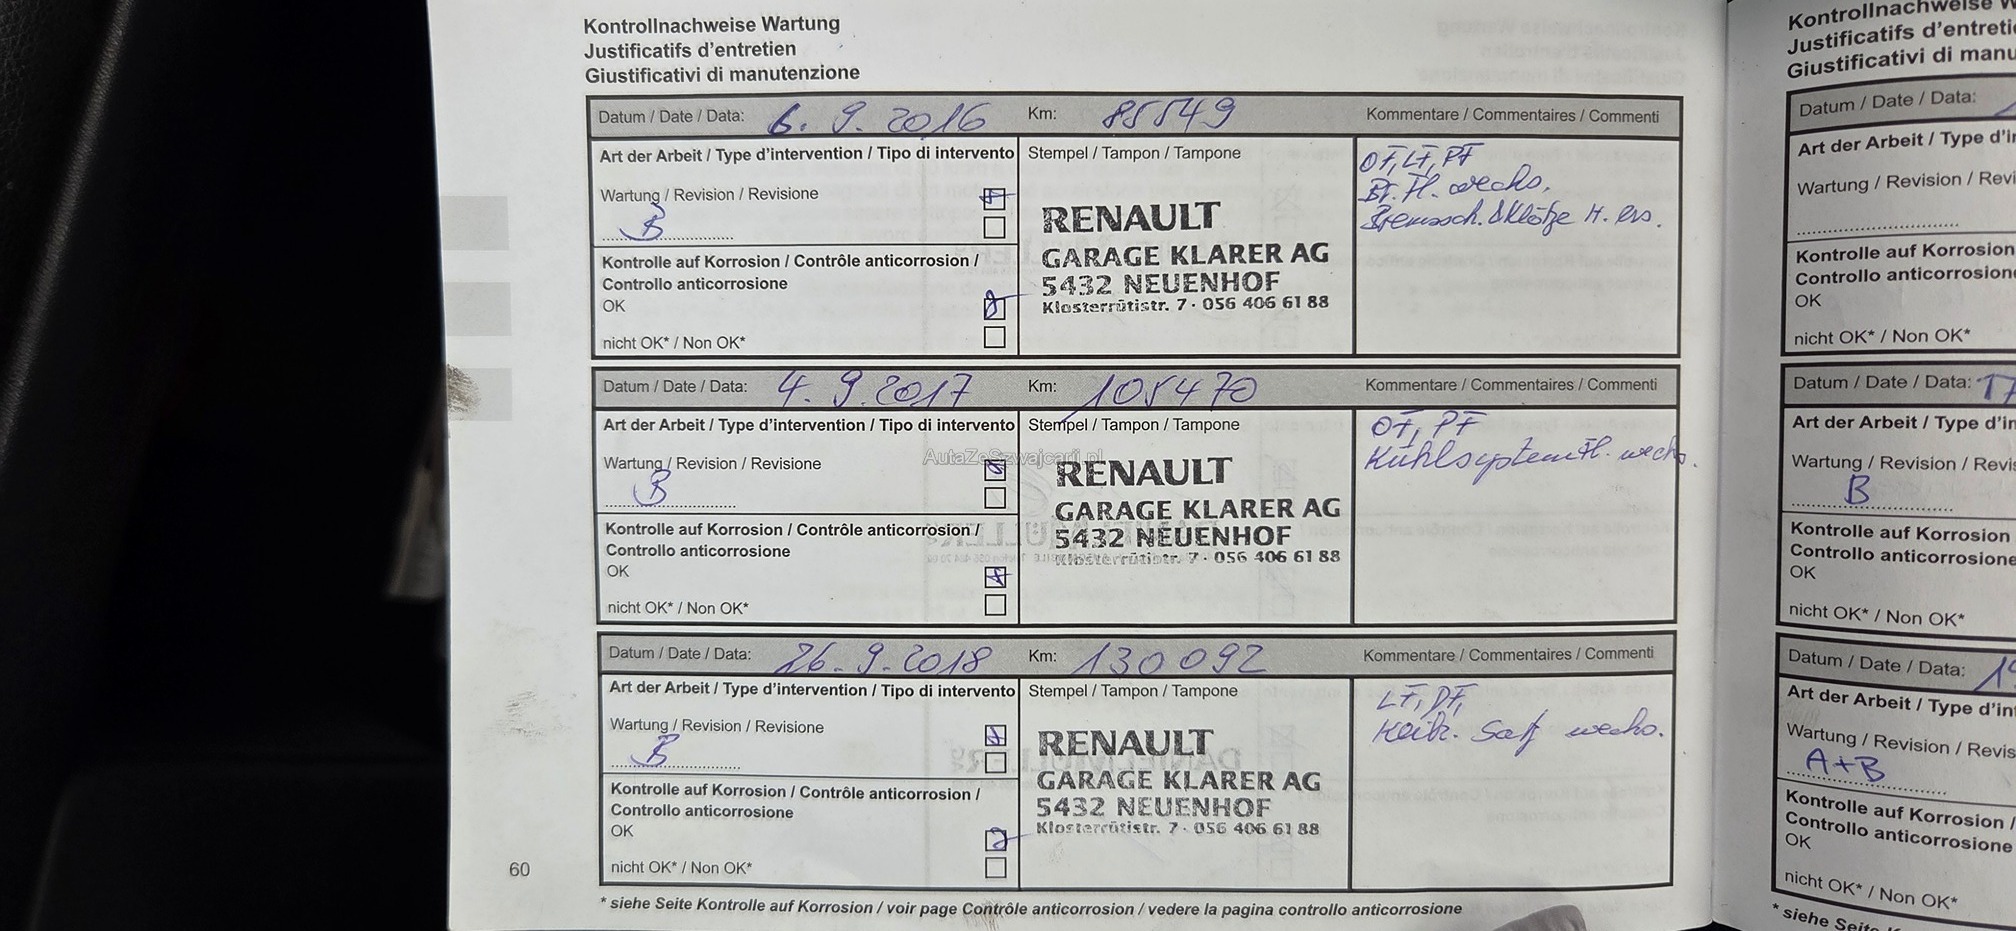 Kontrollnachweise Wartung
Justificatifs d'entretien
Giustificativi di manutenzione
Datum / Date / Data: 6. 9. 2016 Km: 85549 Kommentare / Commentaires / Commenti
Art der Arbeit / Type d'intervention / Tipo di intervento
Stempel / Tampon / Tampone
Wartung / Revision / Revisione
B
Kontrolle auf Korrosion / Contrôle anticorrosion /
Controllo anticorrosione
OK
nicht OK* / Non OK*
RENAULT
GARAGE KLARER AG
5432 NEUENHOF
Klosterrütistr. 7 · 056 406 61 88
OF, LF, PF
Br. Fl. wechs.
Bremssch. & Klötze H. ers.
Datum / Date / Data: 4. 9. 2017 Km: 105470 Kommentare / Commentaires / Commenti
Art der Arbeit / Type d'intervention / Tipo di intervento
Stempel / Tampon / Tampone
Wartung / Revision / Revisione
B
Kontrolle auf Korrosion / Contrôle anticorrosion /
Controllo anticorrosione
OK
nicht OK* / Non OK*
AutaZeSzwajcarii.pl
RENAULT
GARAGE KLARER AG
5432 NEUENHOF
Klosterrütistr. 7 · 056 406 61 88
OF, PF
Kühlsystemfl. wechs.
Datum / Date / Data: 26. 9. 2018 Km: 130092 Kommentare / Commentaires / Commenti
Art der Arbeit / Type d'intervention / Tipo di intervento
Stempel / Tampon / Tampone
Wartung / Revision / Revisione
B
Kontrolle auf Korrosion / Contrôle anticorrosion /
Controllo anticorrosione
OK
nicht OK* / Non OK*
RENAULT
GARAGE KLARER AG
5432 NEUENHOF
Klosterrütistr. 7 · 056 406 61 88
LF, PF,
wechs.
60
* siehe Seite Kontrolle auf Korrosion / voir page Contrôle anticorrosion / vedere la pagina controllo anticorrosione
Kontrollnachweise
Justificatifs
Giustificativi di
Datum / Date / Data:
Art der Arbeit / Type
Wartung / Revision /
Kontrolle auf Korrosion
Controllo
OK
nicht OK* / Non OK*
Datum / Date / Data: 17
Art der Arbeit / Type
Wartung / Revision /
B
Kontrolle auf Korrosion
Controllo
OK
nicht OK* / Non OK*
Datum / Date / Data:
Art der Arbeit / Type
Wartung / Revision /
A+B
Kontrolle auf Korrosion /
Controllo anticorrosione
OK
nicht OK* / Non OK*
* siehe